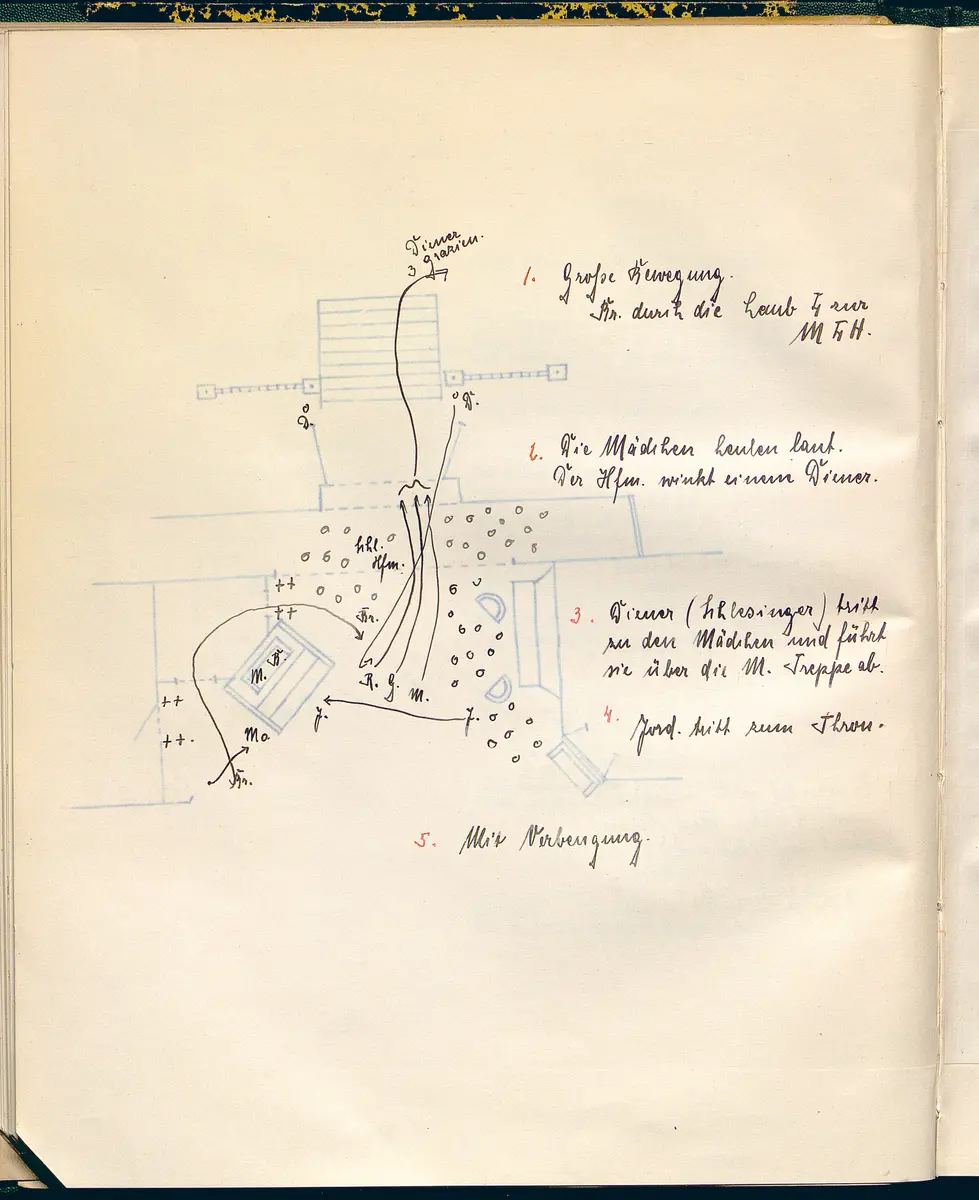 Diener
3 Grazien.
1. Große Bewegung.
Kr. durch die Laub zur
M H.
D.
D.
2. Die Mädchen heulen laut.
Der Hfm. winkt einem Diener.
Schl.
Hfm.
Kr.
3. Diener (Schlesinger) tritt
zu den Mädchen und führt
sie über die M. Treppe ab.
K.
M.
R. G. M.
J.
J.
4. Jord. tritt zum Thron.
Ma.
Kr.
5. Mit Verbeugung.